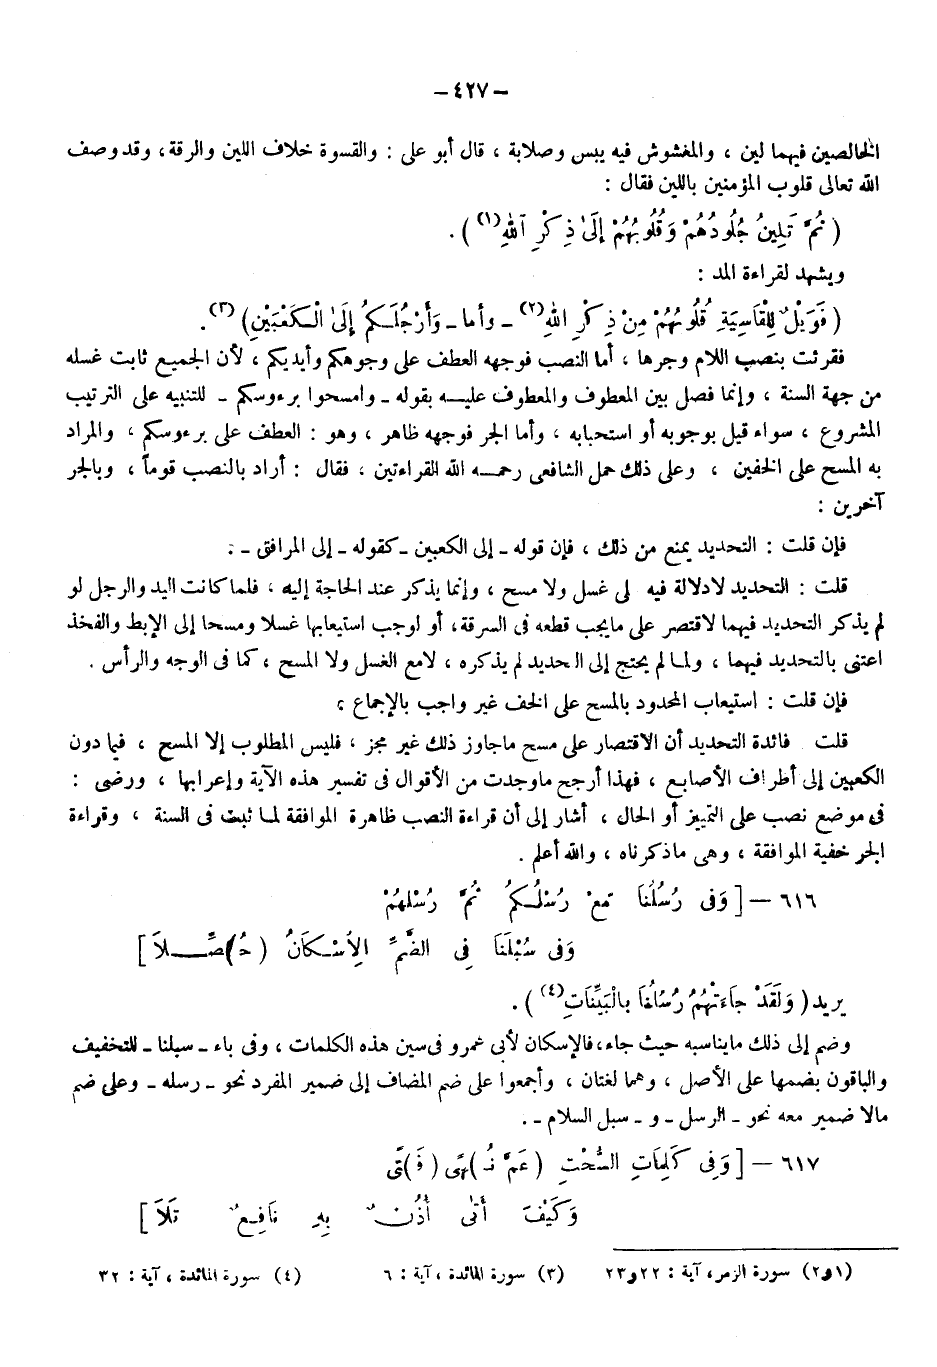 – ٤٢٧ –
الخالصين فيهما لين ، والمغشوش فيه يبس وصلابة ، قال أبو على : والقسوة خلاف اللين والرقة، وقد وصف
الله تعالى قلوب المؤمنين باللين فقال :
( ثُمَّ تَلِينُ جُلُودُهُمْ وَقُلُوبُهُمْ إِلَىٰ ذِكْرِ ٱللهِ(١) ) .
ويشهد لقراءة المد :
( فَوَيْلٌ لِلْقَاسِيَةِ قُلُوبُهُمْ مِنْ ذِكْرِ اللهِ(٢) – وأما – وَأَرْجُلَكُمْ إِلَىٰ الْكَعْبَيْنِ) (٣).
فقرئت بنصب اللام وجرها ، أما النصب فوجهه العطف على وجوهكم وأيديكم ، لأن الجميع ثابت غسله
من جهة السنة ، وإنما فصل بين المعطوف والمعطوف عليه بقوله – وامسحوا برءوسكم – للتنبيه على الترتيب
المشروع ، سواء قيل بوجوبه أو استحبابه ، وأما الجر فوجهه ظاهر ، وهو : العطف على برءوسكم ، والمراد
به المسح على الخفين ، وعلى ذلك حمل الشافعى رحمه الله القراءتين ، فقال : أراد بالنصب قوماً ، وبالجر
آخرين :
فإن قلت : التحديد يمنع من ذلك ، فإن قوله – إلى الكعبين – كقوله – إلى المرافق – :
قلت : التحديد لادلالة فيه لى غسل ولا مسح ، وإنما يذكر عند الحاجة إليه ، فلما كانت اليد والرجل لو
لم يذكر التحديد فيهما لاقتصر على مايجب قطعه فى السرقة، أو لوجب استيعابها غسلا ومسحا إلى الإبط والفخذ
اعتنى بالتحديد فيهما ، ولما لم يحتج إلى الـحديد لم يذكره ، لامع الغسل ولا المسح ، كما فى الوجه والرأس .
فإن قلت : استيعاب المحدود بالمسح على الخف غير واجب بالإجماع ؛
قلت فائدة التحديد أن الاقتصار على مسح ماجاوز ذلك غير مجز ، فليس المطلوب إلا المسح ، فيما دون
الكعبين إلى أطراف الأصابع ، فهذا أرجح ماوجدت من الأقوال فى تفسير هذه الآية وإعرابها ، ورضى :
فى موضع نصب على التمييز أو الحال ، أشار إلى أن قراءة النصب ظاهرة الموافقة لما ثبت فى السنة ، وقراءة
الجر خفية الموافقة ، وهى ماذكرناه ، والله أعلم .
٦١٦ – [ وَفى رُسُلُنَا مَعْ رُسْلُكُمْ ثُمَّ رُسْلُهُمْ
وَفى سُبْلَنَا فِى الضَّمِّ الاِسْكَانُ (حُـ)صِّـلاَ ]
يريد ( وَلَقَدْ جَاءَتْهُمْ رُسُلُنَا بِالْبَيِّنَاتِ(٤) ) .
وضم إلى ذلك مايناسبه حيث جاء، فالإسكان لأبى عمرو فى سين هذه الكلمات ، وفى باء – سبلنا – للتخفيف
والباقون بضمها على الأصل ، وهما لغتان ، وأجمعوا على ضم المضاف إلى ضمير المفرد نحو – رسله – وعلى ضم
مالا ضمير معه نحو – الرسل – و – سبل السلام – .
٦١٧ – [ وَفِى كَلِمَاتِ السُّحْتِ (عَمَّ نُـ)هًى (فَـ)تًى
وَكَيْفَ أَتَى أُذْنٌ بِهِ نَافِعٌ تَلاَ ]
(١و٢) سورة الزمر، آية : ٢٢و٢٣ (٣) سورة المائدة ، آية : ٦ (٤) سورة المائدة ، آية : ٣٢